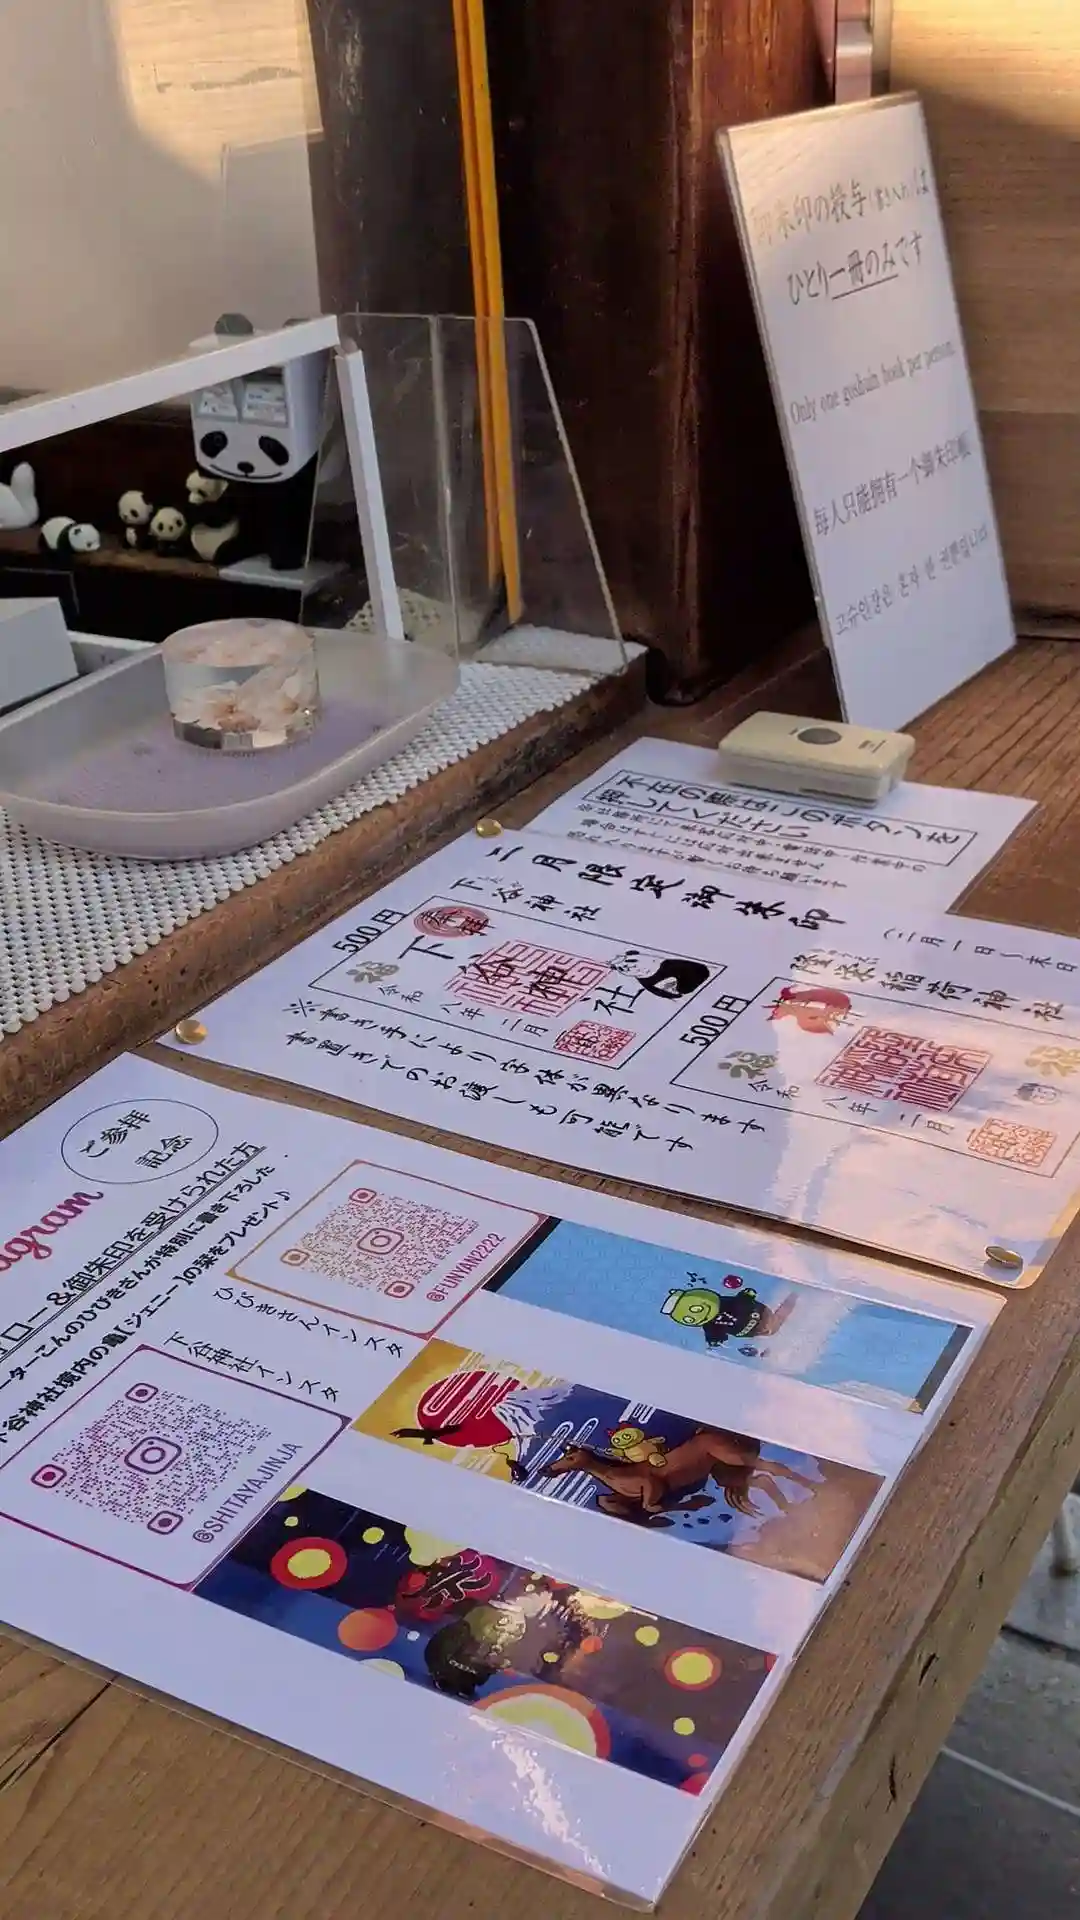 御朱印の授与(書き入れ)は
ひとり一冊のみです
Only one goshuin book per person.
每人只能擁有一个御朱印帳
고슈인장은 혼자 한 권뿐입니다
不在の際はこのボタンを
押してください
二月限定御朱印
(二月一日~末日
下谷神社
500円
奉拝
下谷神社
福
令和八年二月
隆栄稲荷神社
500円
福
令和八年二月
※書き手により字体が異なります
書置きでのお渡しも可能です
ご参拝
記念
agram
ロー&御朱印を受けられた方
ーターこんのひびきさんが特別に書き下ろした
下谷神社境内の亀【ジェニー】の栞をプレゼント♪
@FUNYAN2222
ひびきさんインスタ
下谷神社インスタ
@SHITAYAJINJA